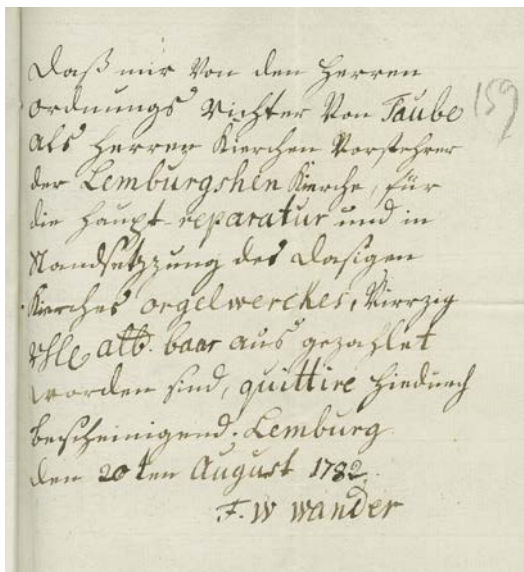 Daß mir Von den Herren
Ordnungs Richter Von Taube
als Herren Kierchen Vorstehrer
der Lemburgshen Kierche, für
die Haupt-reparatur und in
Standsetzzung des dasigen
Kierches orgelwerckes, Vierzig
rthlr alb. baar aus gezahlet
worden sind, quittire hiedurch
bescheinigend. Lemburg
den 20ten August 1782.
F. W Wander
159